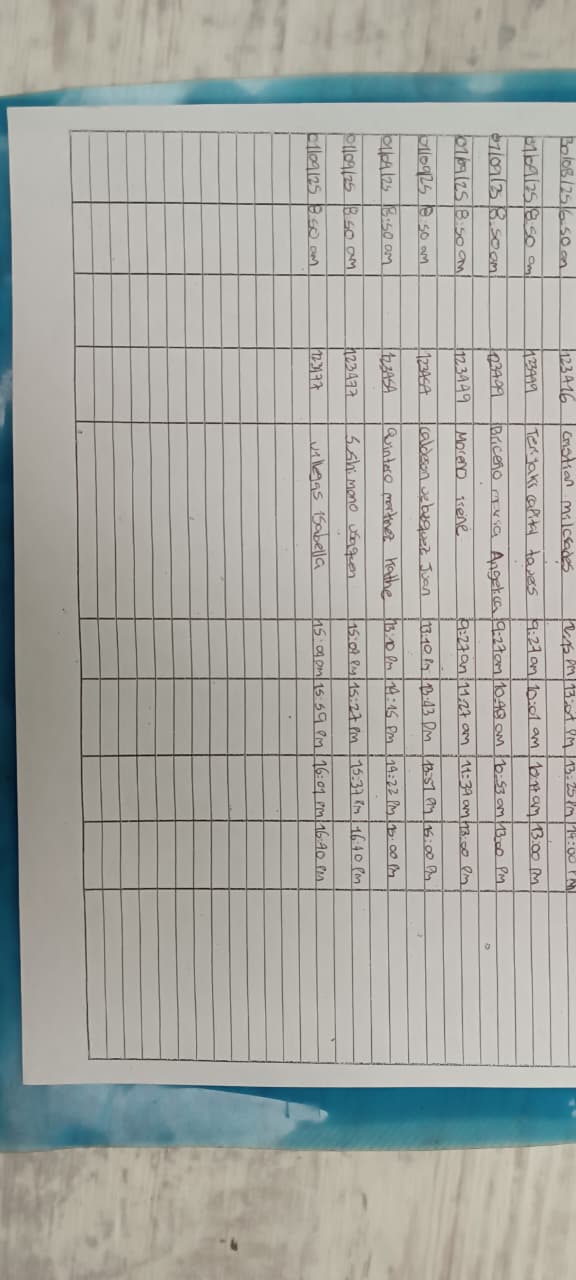 30/08/25 6:50 am 123416 13:25 pm 14:00 pm
01/09/25 8:50 am 123449 Teriyaki capital 9:27 am 10:01 am 13:00 pm
01/09/25 8:50 am 123499 Briceño Angelica 9:27 am 10:48 am 10:53 am 13:00 pm
01/09/25 8:50 am 123449 Moreno irene 9:27 am 11:27 am 11:39 am 13:00 pm
01/09/25 8:50 am 123454 velasquez Juan 13:10 pm 13:43 pm 13:51 pm 15:00 pm
01/09/25 8:50 am 123454 Quintero martinez Kathe 13:10 pm 14:15 pm 14:22 pm 15:00 pm
01/09/25 8:50 am 123477 Sushi mono usaquen 15:09 pm 15:27 pm 15:37 pm 16:40 pm
01/09/25 8:50 am 123477 villegas Isabella 15:09 pm 15:59 pm 16:09 pm 16:40 pm